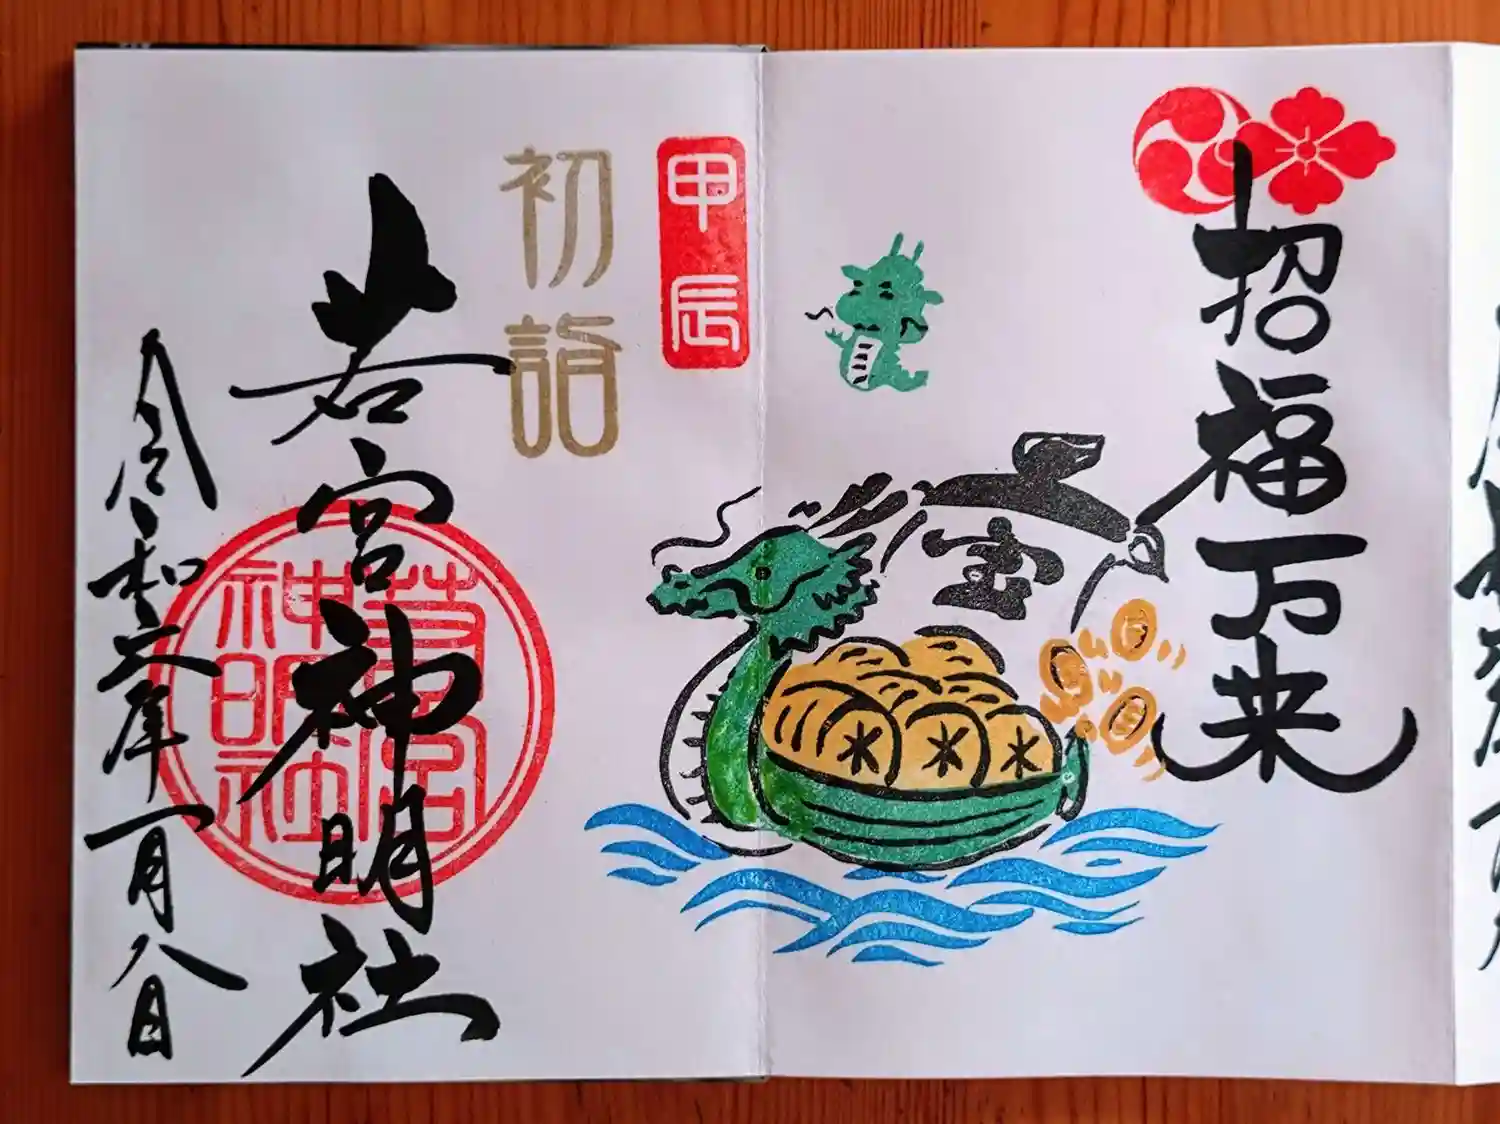 招福万来
宝
甲辰
初詣
若宮神明社
若宮
神明社
令和六年一月八日